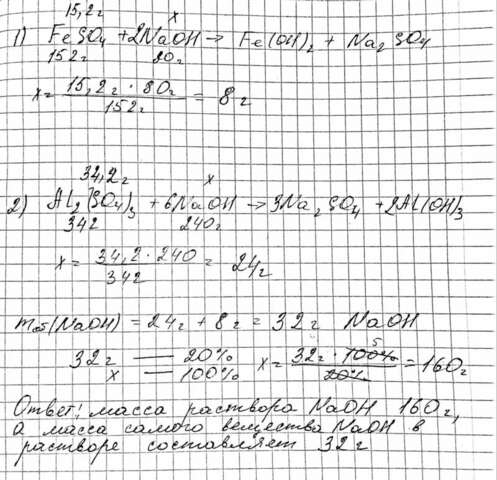 15,2г x
1) FeSO4 + 2NaOH → Fe(OH)2 + Na2SO4
152г 80г
x = 15,2г · 80г / 152г = 8 г
34,2г x
2) AL2(SO4)3 + 6NaOH → 3Na2SO4 + 2AL(OH)3
342 240г
x = 34,2 · 240 / 342 = 24г
mоб(NaOH) = 24г + 8г = 32г NaOH
32г — 20% x = 32г · 100% 5 / 20% = 160г
x — 100%
Ответ: масса раствора NaOH 160г,
а масса самого вещества NaOH в
растворе составляет 32г